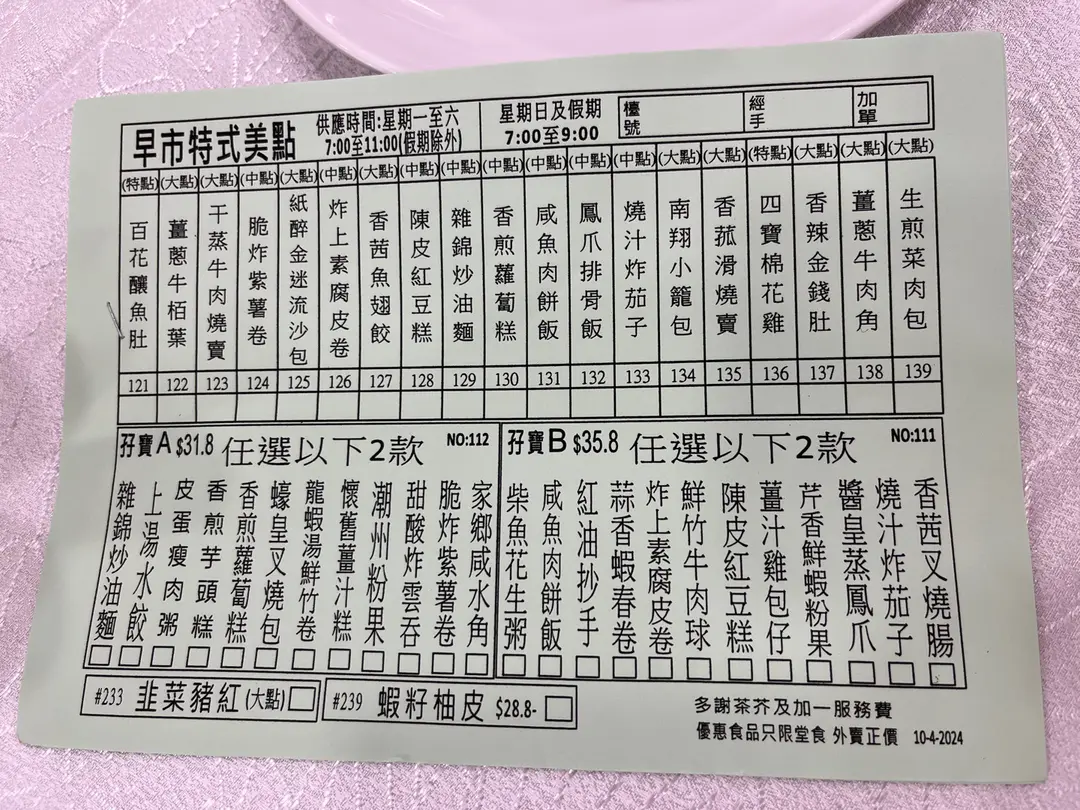 早市特式美點
供應時間:星期一至六
7:00至11:00(假期除外)
星期日及假期
7:00至9:00
檯號
經手
加單
(特點) 百花釀魚肚 121
(大點) 薑蔥牛栢葉 122
(大點) 干蒸牛肉燒賣 123
(中點) 脆炸紫薯卷 124
(大點) 紙醉金迷流沙包 125
(中點) 炸上素腐皮卷 126
(大點) 香茜魚翅餃 127
(中點) 陳皮紅豆糕 128
(中點) 雜錦炒油麵 129
(中點) 香煎蘿蔔糕 130
(中點) 咸魚肉餅飯 131
(中點) 鳳爪排骨飯 132
(中點) 燒汁炸茄子 133
(大點) 南翔小籠包 134
(大點) 香菰滑燒賣 135
(特點) 四寶棉花雞 136
(大點) 香辣金錢肚 137
(大點) 薑蔥牛肉角 138
(大點) 生煎菜肉包 139
孖寶A $31.8 任選以下2款 NO:112
雜錦炒油麵
上湯水餃
皮蛋瘦肉粥
香煎芋頭糕
香煎蘿蔔糕
蠔皇叉燒包
龍蝦湯鮮竹卷
懷舊薑汁糕
潮州粉果
甜酸炸雲吞
脆炸紫薯卷
家鄉咸水角
孖寶B $35.8 任選以下2款 NO:111
柴魚花生粥
咸魚肉餅飯
紅油抄手
蒜香蝦春卷
炸上素腐皮卷
鮮竹牛肉球
陳皮紅豆糕
薑汁雞包仔
芹香鮮蝦粉果
醬皇蒸鳳爪
燒汁炸茄子
香茜叉燒腸
#233 韭菜豬紅(大點)
#239 蝦籽柚皮 $28.8-
多謝茶芥及加一服務費
優惠食品只限堂食 外賣正價 10-4-2024